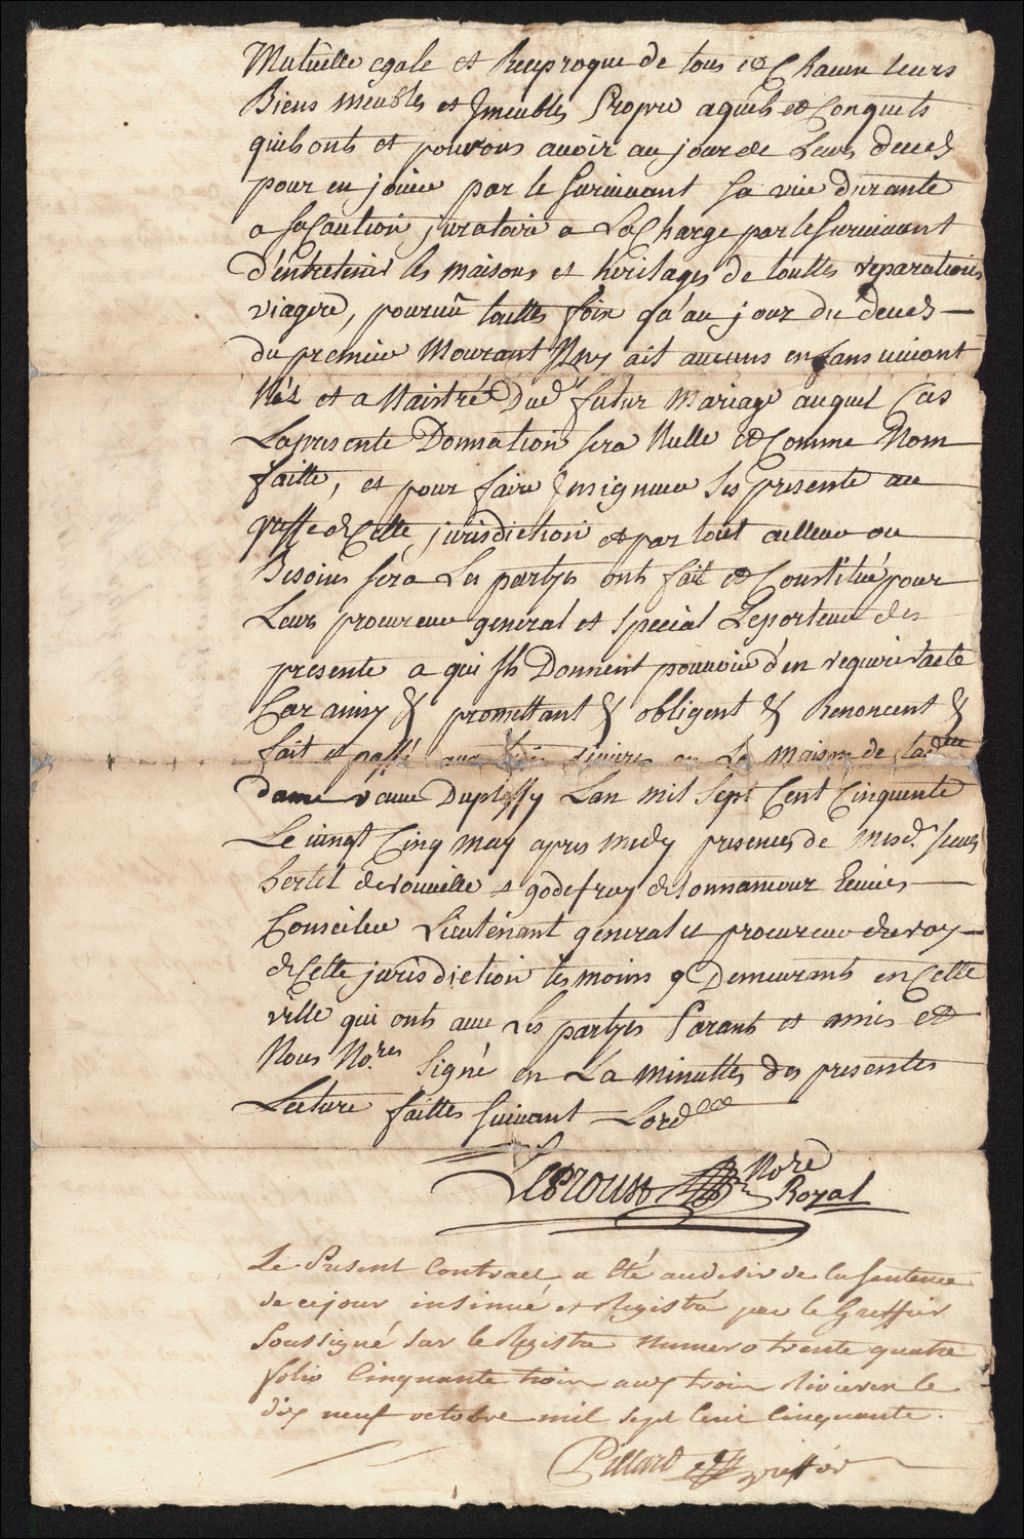 Mutuelle egale et Reciproque de tous et Chacun leurs
Biens meubles et Jmeubles Propre aquets et Conquets
quils onts et pouvons avoir au jour de Leurs deces
pour en jouire par le survivant sa vie durante
a sa Caution juratoire a La Charge par le survivant
d'entretenir les maisons et héritages de touttes reparations
viagere, pourvû toutte fois qu'au jour du deces
du premier Mourant N'ny ait aucuns enfans vivant
Néz et a Naistré Dud.t futur Mariage auquel Cas
La presente Donnation sera Nulle et Comme Nom
faitte, et pour faire Jnsignuer Ses presente au
greffe de Cette jurisdiction et par tout ailleur ou
Besoins séra Les partyes onts fait et Constitué pour
Leurs procureur general et special Le porteur des
presente a qui Jls Donnent pouvoir d'en requerir acte
Car ainsy & promettant & obligent & Renoncent &
fait et passé aux trois rivieres en La maison de lad.
dame veuve Duplessy Lan mil sept Cent Cinquente
Le vingt Cinq may apres midy presences de Mesd. sieurs
hertel de rouville et godefroy de tonnancour
Conseiller Lieutenant general et procureur du roy
de Cette jurisdiction temoins q. Demeurants en Cette
ville qui onts avec Les partyes Parants et amis et
Nous No.res Signé en La minuttes des presentes
Lecture faittes suivant Lord
Leproust No.re
Royal
Le Present Contract a Eté au desir de la Sentence
de ce jour insinué et Registré par le Greffier
Soussigné sur le Registre Numero trente quatre
folio Cinquante trois aux trois Rivieres le
dix neuf octobre mil sept Cent Cinquante.
Pillard greffier